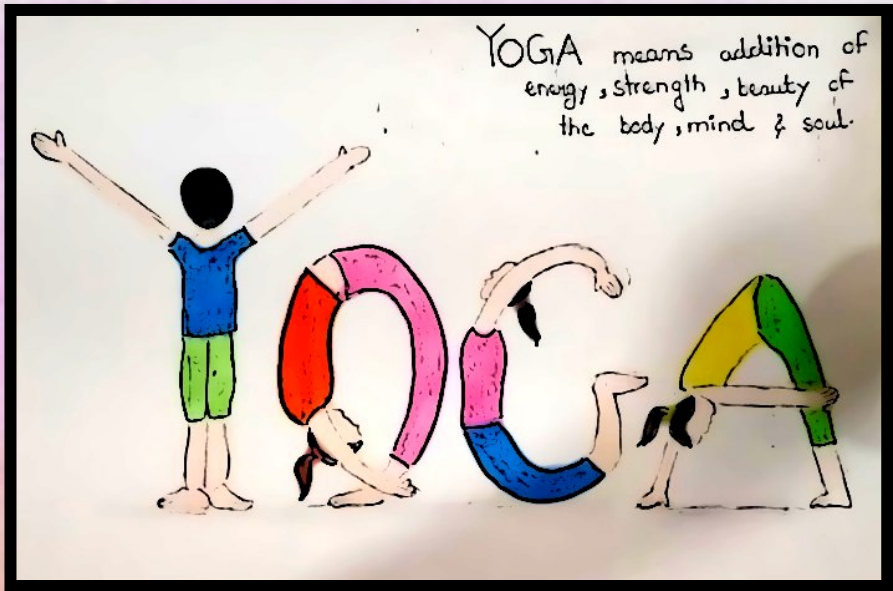 YOGA means addition of
energy, strength, beauty of
the body, mind & soul.
YOGA